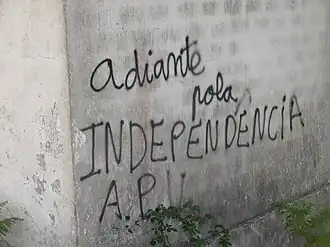 adiante
pola
INDEPENDENCIA
A.P.U